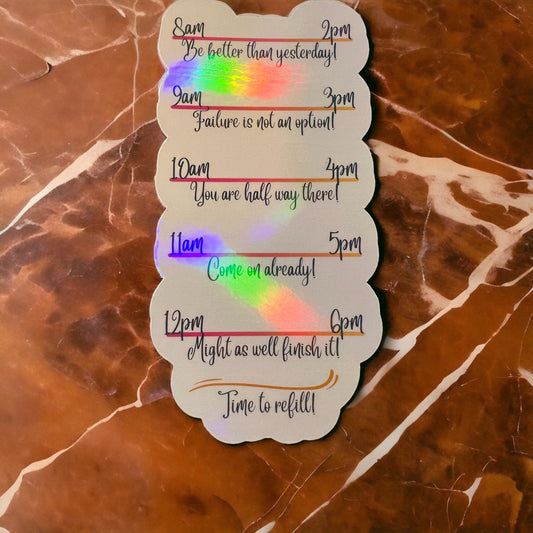 8am 2pm
Be better than yesterday!
9am 3pm
Failure is not an option!
10am 4pm
You are half way there!
11am 5pm
Come on already!
12pm 6pm
Might as well finish it!
Time to refill!